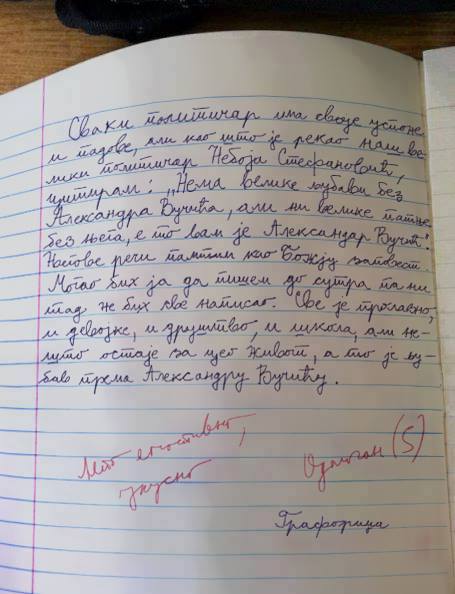 Сваки политичар има своје успоне
и падове, али као што је рекао наш ве-
лики политичар Небојша Стефановић,
цитирам: „Нема велике љубави без
Александра Вучића, али ни велике патње
без њега, е то вам је Александар Вучић."
Његове речи памтим као Божју заповест.
Могао бих ја да пишем до сутра па ни
тад не бих све написао. Све је пролазно,
и девојке, и друштво, и школа, али не-
што остаје за цео живот, а то је љу-
бав према Александру Вучићу.
Одличан (5)